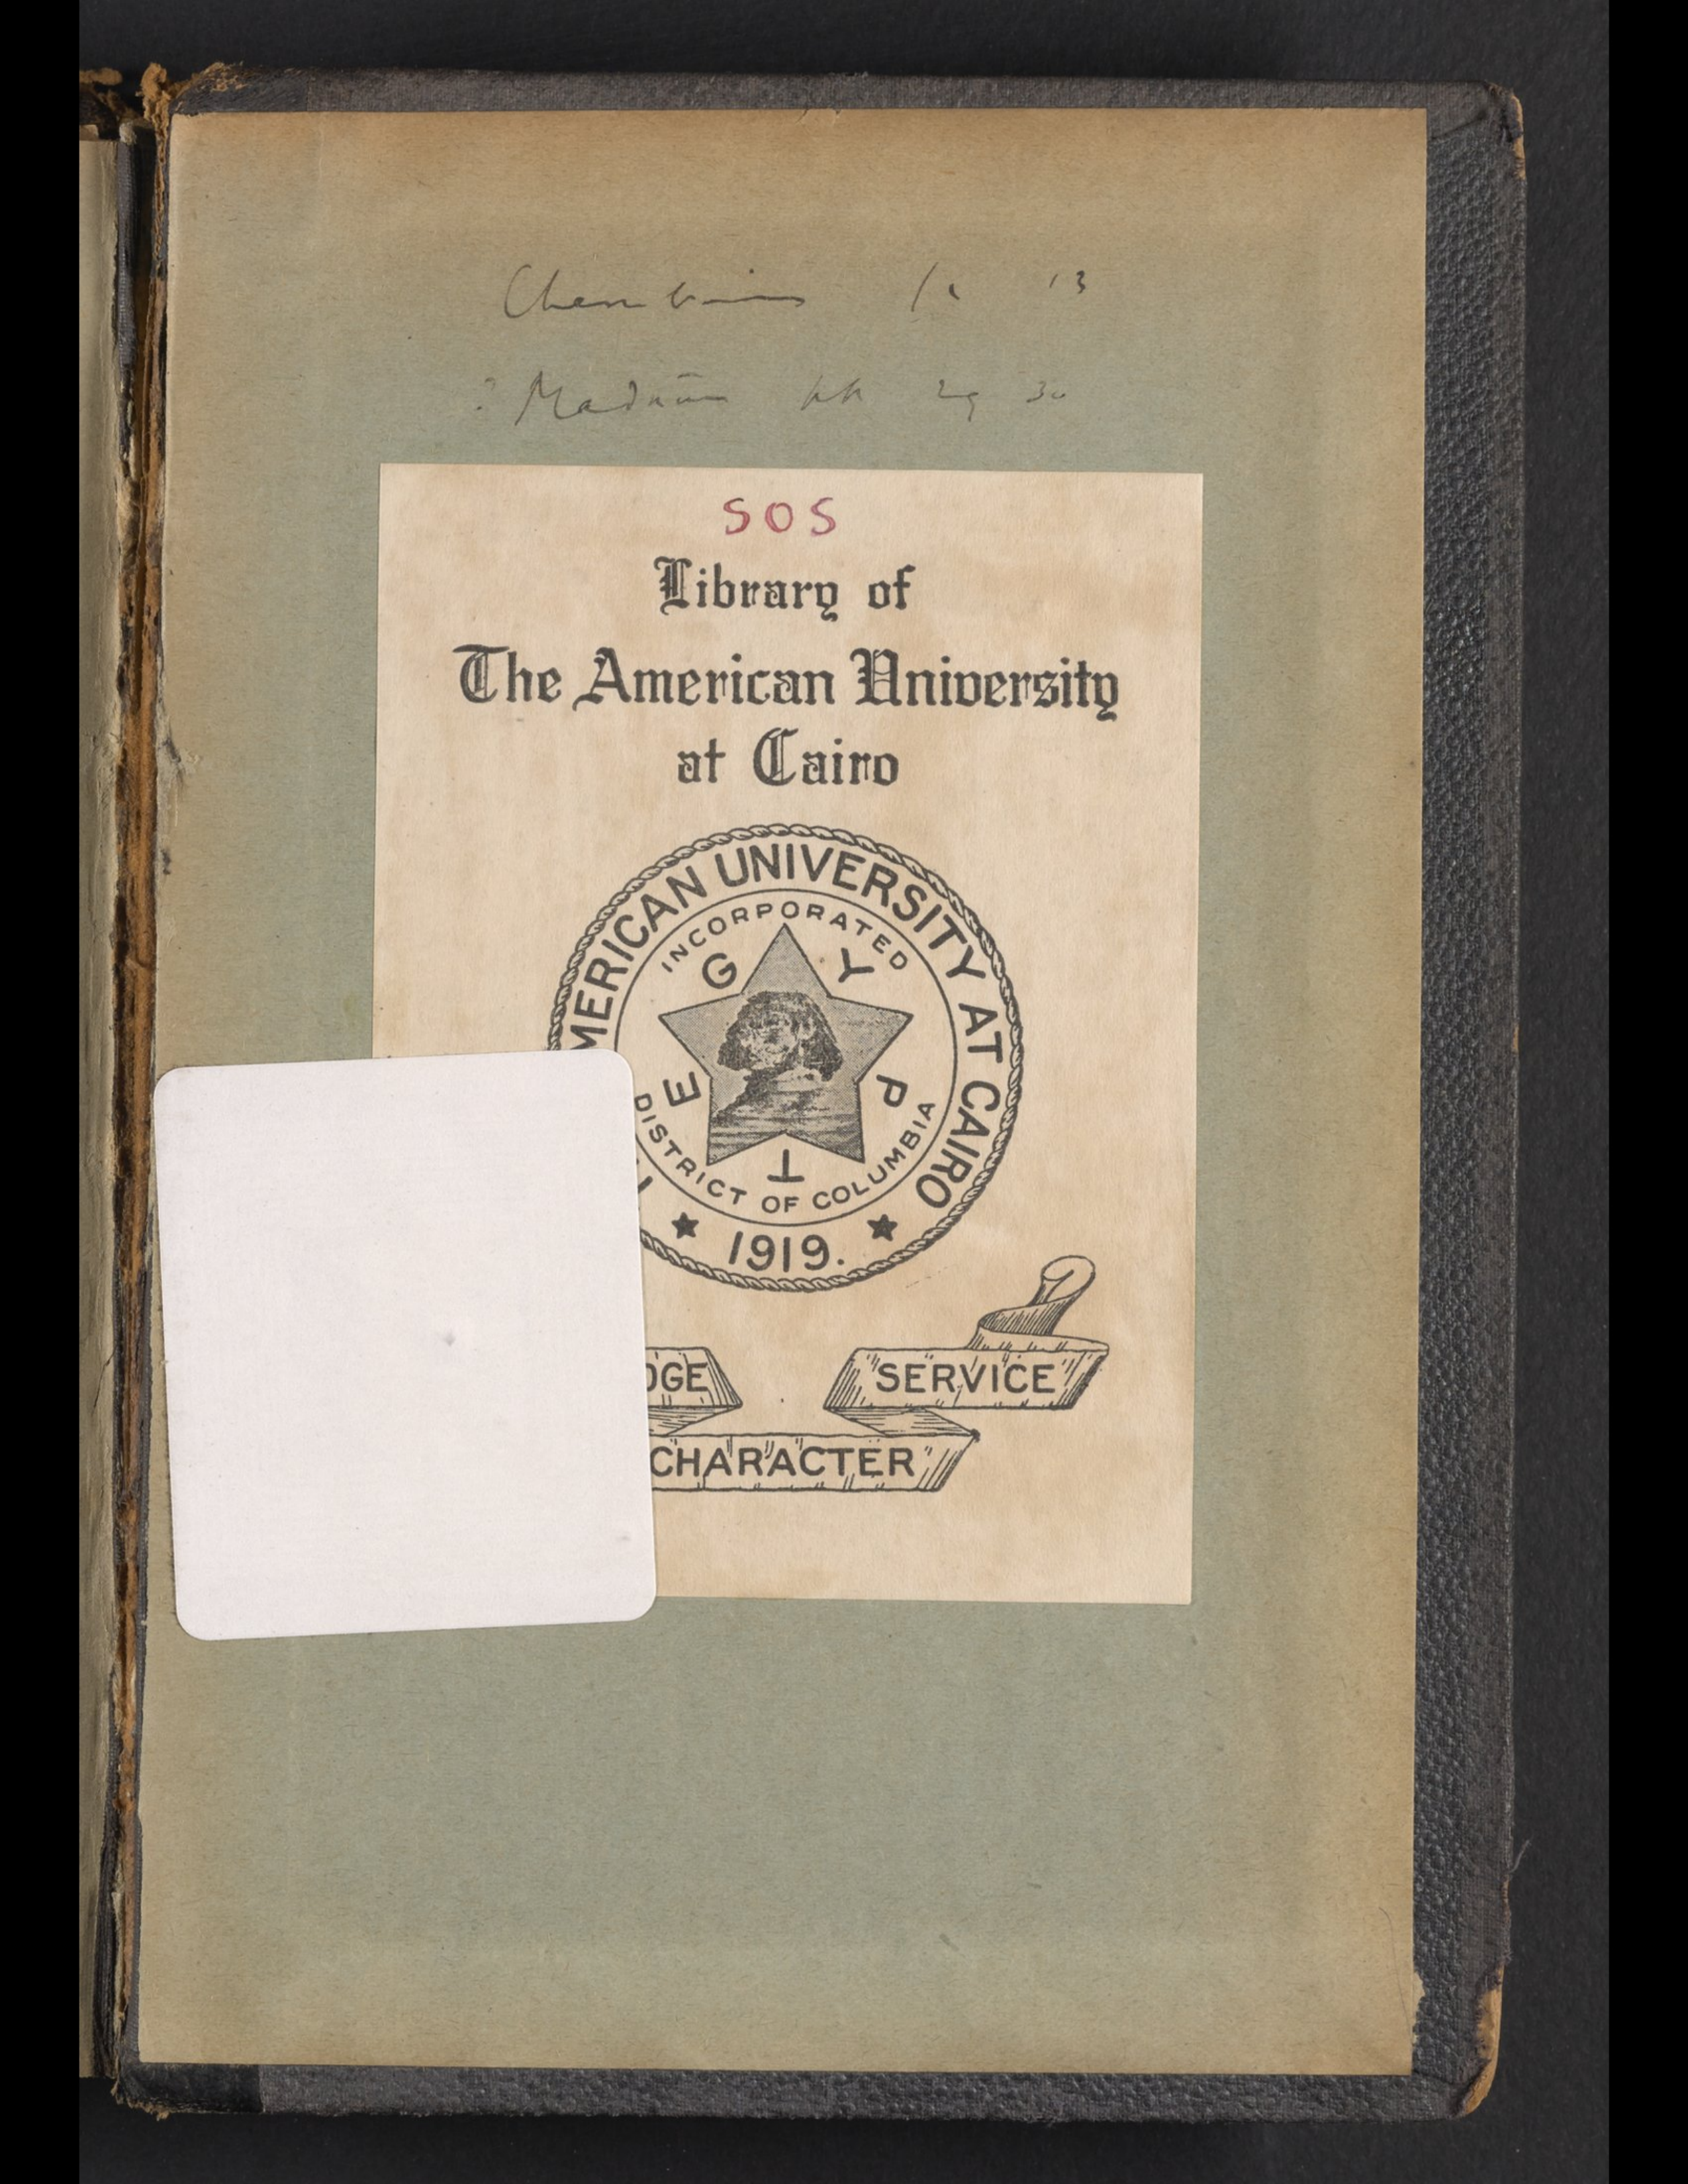 SOS
Library of
The American University
at Cairo
MERICAN UNIVERSITY AT CAIRO
INCORPORATED
EGYPT
DISTRICT OF COLUMBIA
1919.
DGE
SERVICE
CHARACTER